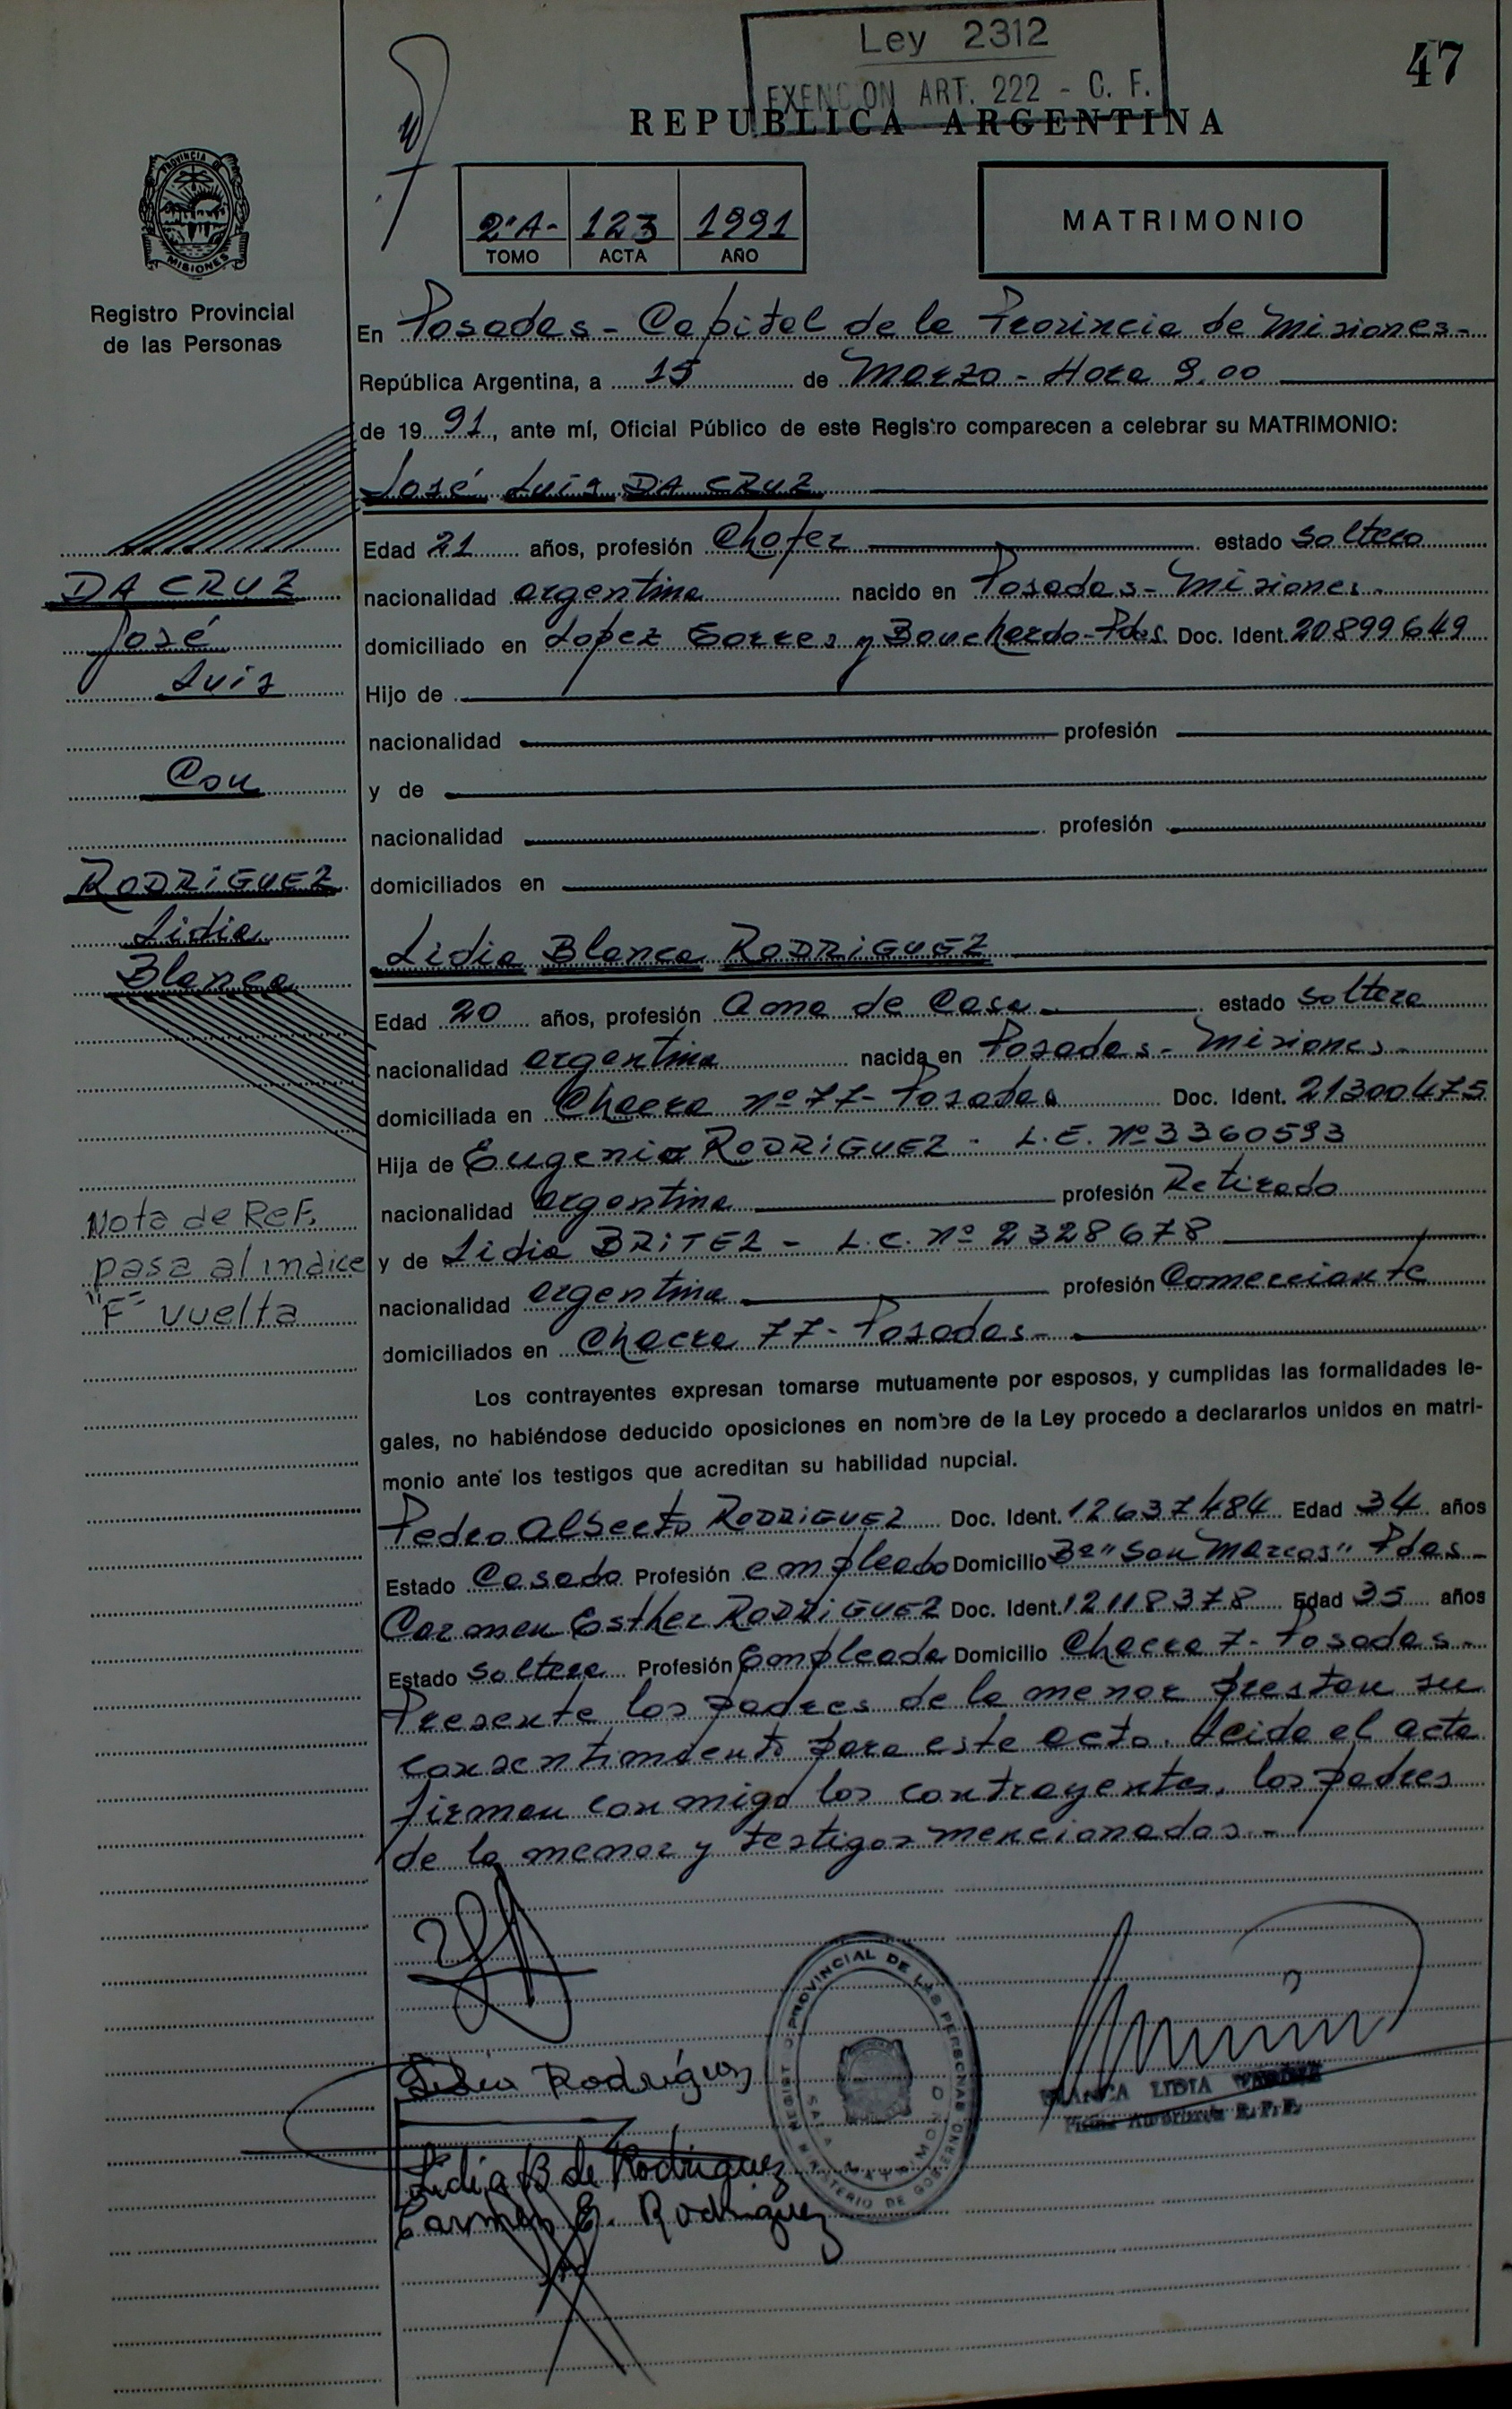 Ley 2312
EXENCION ART. 222 - C. F.
47
REPUBLICA ARGENTINA
PROVINCIA DE
MISIONES
Registro Provincial
de las Personas
2º A- 123 1991
TOMO ACTA AÑO
MATRIMONIO
En Posadas - Capital de la Provincia de Misiones-
República Argentina, a 15 de Marzo - Hora 9.00
de 1991, ante mí, Oficial Público de este Registro comparecen a celebrar su MATRIMONIO:
José Luis DA CRUZ
Edad 21 años, profesión Chofer estado Soltero
nacionalidad argentina nacido en Posadas - Misiones.
domiciliado en Lopez Torres y Bouchardo-Pdas. Doc. Ident. 20899649
Hijo de
nacionalidad profesión
y de
nacionalidad profesión
domiciliados en
DA CRUZ
José
Luis
Con
RODRIGUEZ
Lidia
Blanca
Lidia Blanca RODRIGUEZ
Edad 20 años, profesión Ama de Casa estado Soltera
nacionalidad argentina nacida en Posadas - Misiones-
domiciliada en Chacra nº 77- Posadas Doc. Ident. 21300475
Hija de Eugenio RODRIGUEZ - L.E. Nº 3360593
nacionalidad argentina profesión Retirado
y de Lidia BRITEZ - L.C. Nº 2328678
nacionalidad argentina profesión Comerciante
domiciliados en Chacra 77- Posadas-
Nota de Ref.
pasa al indice
"F" vuelta
Los contrayentes expresan tomarse mutuamente por esposos, y cumplidas las formalidades le-
gales, no habiéndose deducido oposiciones en nombre de la Ley procedo a declararlos unidos en matri-
monio ante los testigos que acreditan su habilidad nupcial.
Pedro Alberto RODRIGUEZ Doc. Ident. 12637484 Edad 34 años
Estado Casado Profesión empleado Domicilio Bº "San Marcos" Pdas-
Carmen Esther RODRIGUEZ Doc. Ident. 12118378 Edad 35 años
Estado Soltera Profesión Empleada Domicilio Chacra 7- Posadas-
Presente los padres de la menor prestan su
consentimiento para este acto. Leida el acta
firman conmigo los contrayentes, los padres
de la menor y testigos mencionados.-
Lidia Rodríguez
Lidia B de Rodriguez
Carmen E. Rodriguez
REGISTRO PROVINCIAL DE LAS PERSONAS
MINISTERIO DE GOBIERNO
BLANCA LIDIA
Firma Autorizada R.P.P.